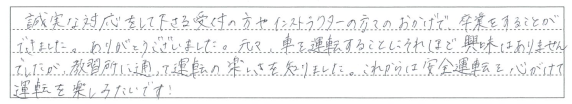 誠実な対応をして下さる受付の方やインストラクターの方々のおかげで、卒業をすることが
できました。ありがとうございました。元々、車を運転することにそれほど興味はありません
でしたが、教習所に通って運転の楽しさを知りました。これからは安全運転を心がけて
運転を楽しみたいです！